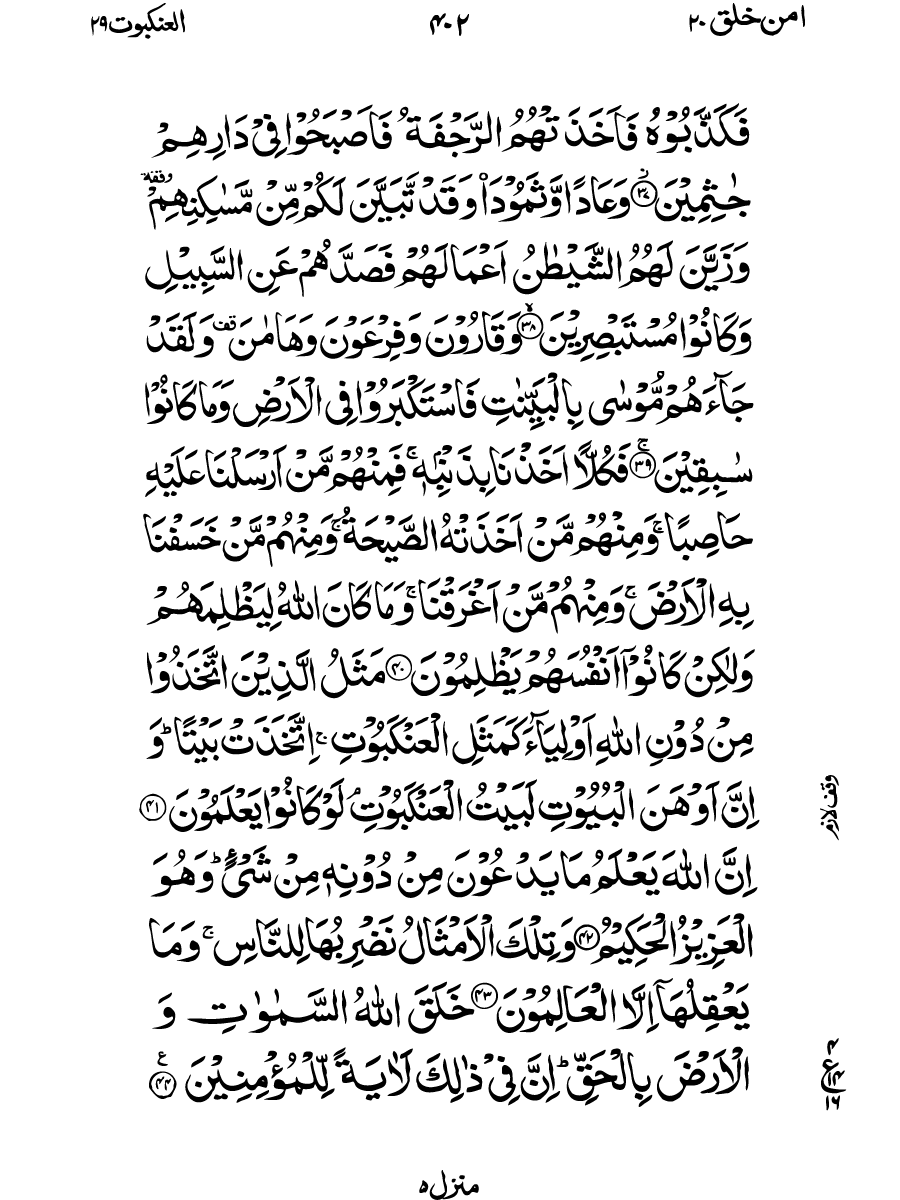 امن خلق ٢٠
٤٠٢
العنكبوت ٢٩
فَكَذَّبُوْهُ فَاَخَذَتْهُمُ الرَّجْفَةُ فَاَصْبَحُوْا فِيْ دَارِهِمْ
جٰثِمِيْنَ ۟ۙ﴿٣٧﴾ وَعَادًا وَّثَمُوْدَا۠ وَقَدْ تَّبَيَّنَ لَكُمْ مِّنْ مَّسٰكِنِهِمْ وقفة
وَزَيَّنَ لَهُمُ الشَّيْطٰنُ اَعْمَالَهُمْ فَصَدَّهُمْ عَنِ السَّبِيْلِ
وَكَانُوْا مُسْتَبْصِرِيْنَ ۙ﴿٣٨﴾ وَقَارُوْنَ وَفِرْعَوْنَ وَهَامٰنَ قف وَلَقَدْ
جَآءَهُمْ مُّوْسٰى بِالْبَيِّنٰتِ فَاسْتَكْبَرُوْا فِي الْاَرْضِ وَمَا كَانُوْا
سٰبِقِيْنَ ۚ﴿٣٩﴾ فَكُلًّا اَخَذْنَا بِذَنْۢبِهٖ ۚ فَمِنْهُمْ مَّنْ اَرْسَلْنَا عَلَيْهِ
حَاصِبًا ۚ وَمِنْهُمْ مَّنْ اَخَذَتْهُ الصَّيْحَةُ ۚ وَمِنْهُمْ مَّنْ خَسَفْنَا
بِهِ الْاَرْضَ ۚ وَمِنْهُمْ مَّنْ اَغْرَقْنَا ۚ وَمَا كَانَ اللّٰهُ لِيَظْلِمَهُمْ
وَلٰكِنْ كَانُوْۤا اَنْفُسَهُمْ يَظْلِمُوْنَ ﴿٤٠﴾ مَثَلُ الَّذِيْنَ اتَّخَذُوْا
مِنْ دُوْنِ اللّٰهِ اَوْلِيَآءَ كَمَثَلِ الْعَنْكَبُوْتِ ۚ اِتَّخَذَتْ بَيْتًا ؕ وَ
اِنَّ اَوْهَنَ الْبُيُوْتِ لَبَيْتُ الْعَنْكَبُوْتِ ۘ لَوْ كَانُوْا يَعْلَمُوْنَ ﴿٤١﴾
وقف لازم
اِنَّ اللّٰهَ يَعْلَمُ مَا يَدْعُوْنَ مِنْ دُوْنِهٖ مِنْ شَيْءٍ ؕ وَهُوَ
الْعَزِيْزُ الْحَكِيْمُ ﴿٤٢﴾ وَتِلْكَ الْاَمْثَالُ نَضْرِبُهَا لِلنَّاسِ ۚ وَمَا
يَعْقِلُهَاۤ اِلَّا الْعَالِمُوْنَ ﴿٤٣﴾ خَلَقَ اللّٰهُ السَّمٰوٰتِ وَ
الْاَرْضَ بِالْحَقِّ ؕ اِنَّ فِيْ ذٰلِكَ لَاٰيَةً لِّلْمُؤْمِنِيْنَ ﴿٤٤﴾ ع
٤
ع ١٤
١٦
منزل ٥